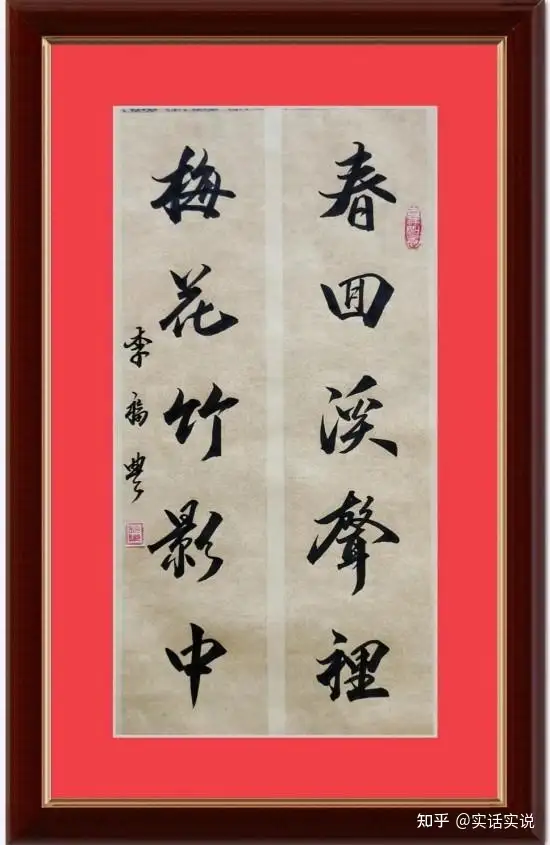 春回溪聲裡
梅花竹影中
李福豐
知乎 @实话实说